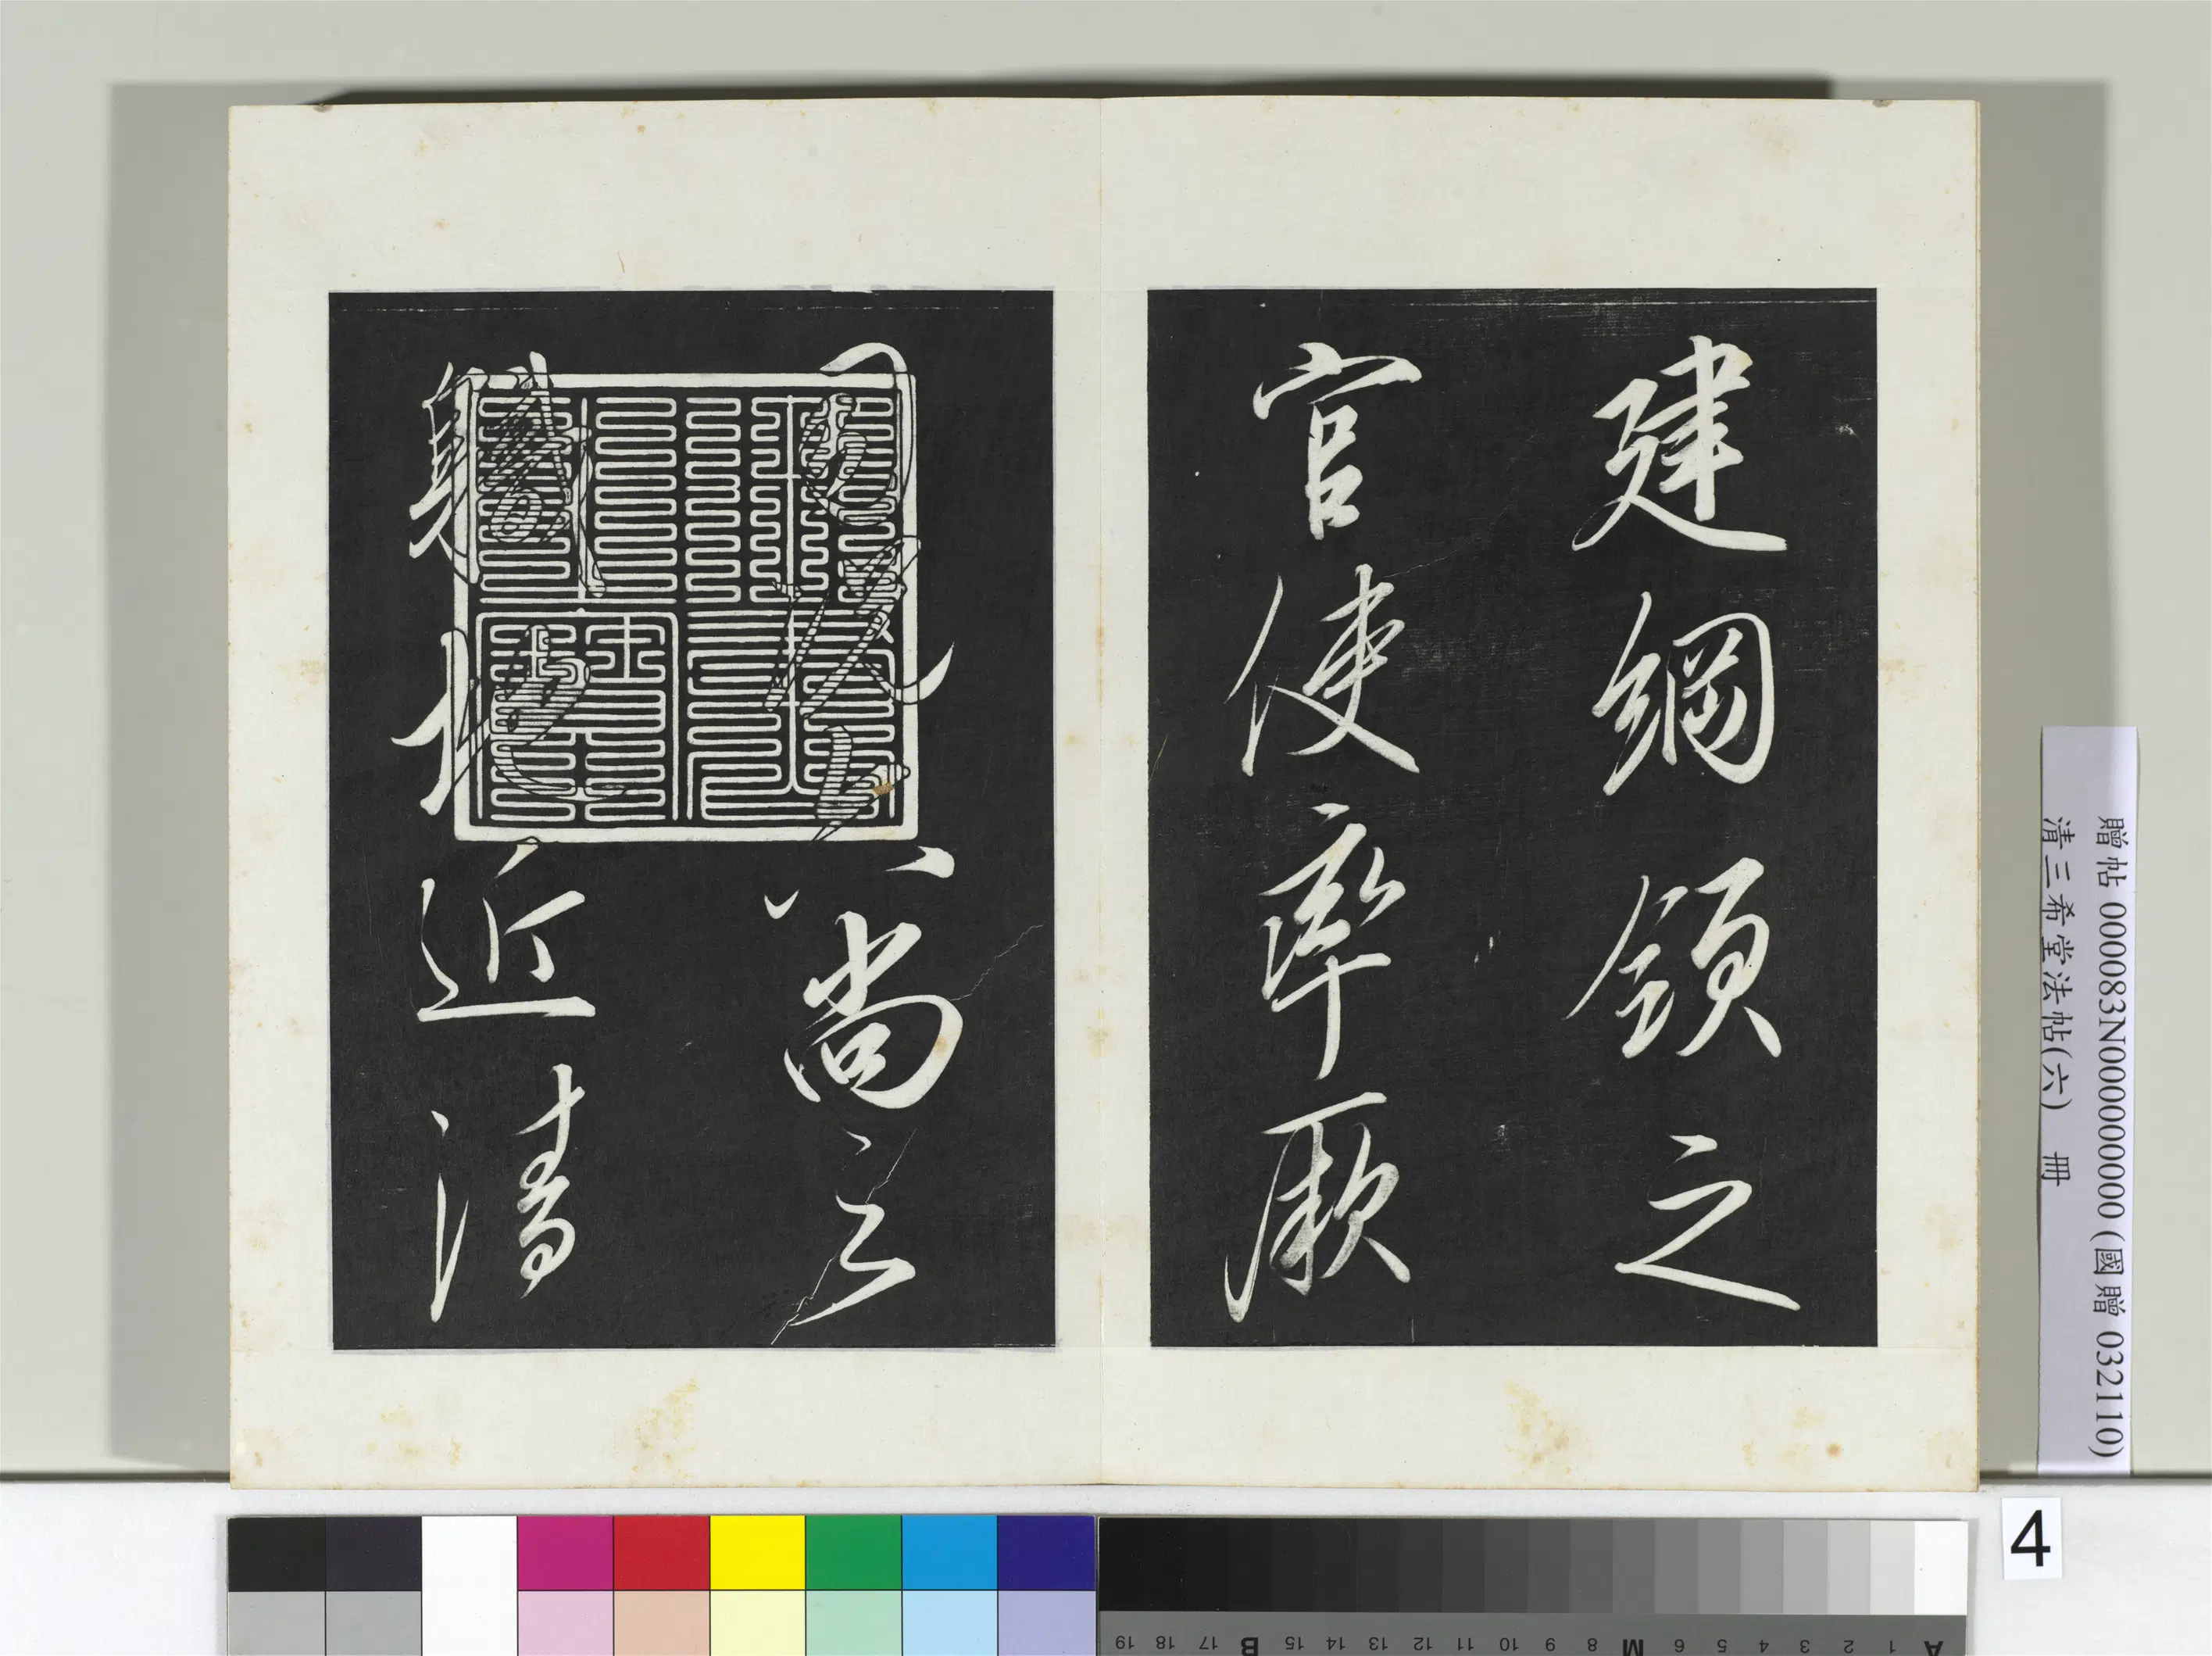 建綱領之
官使率厥
司況六尚之
職地近清
贈帖 000083N000000000 (國贈 032110)
清三希堂法帖(六) 冊
4
A 1 2 3 4 5 6 M 8 9 10 11 12 13 14 15 B 17 18 19